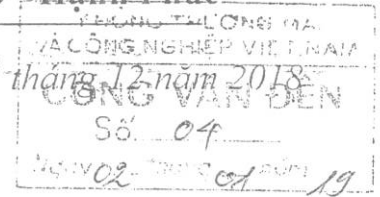 Hạnh Phúc
PHÒNG THƯƠNG MẠI
VÀ CÔNG NGHIỆP VIỆT NAM
tháng 12 năm 2018
CÔNG VĂN ĐẾN
Số 04
Ngày 02 tháng 01 năm 19